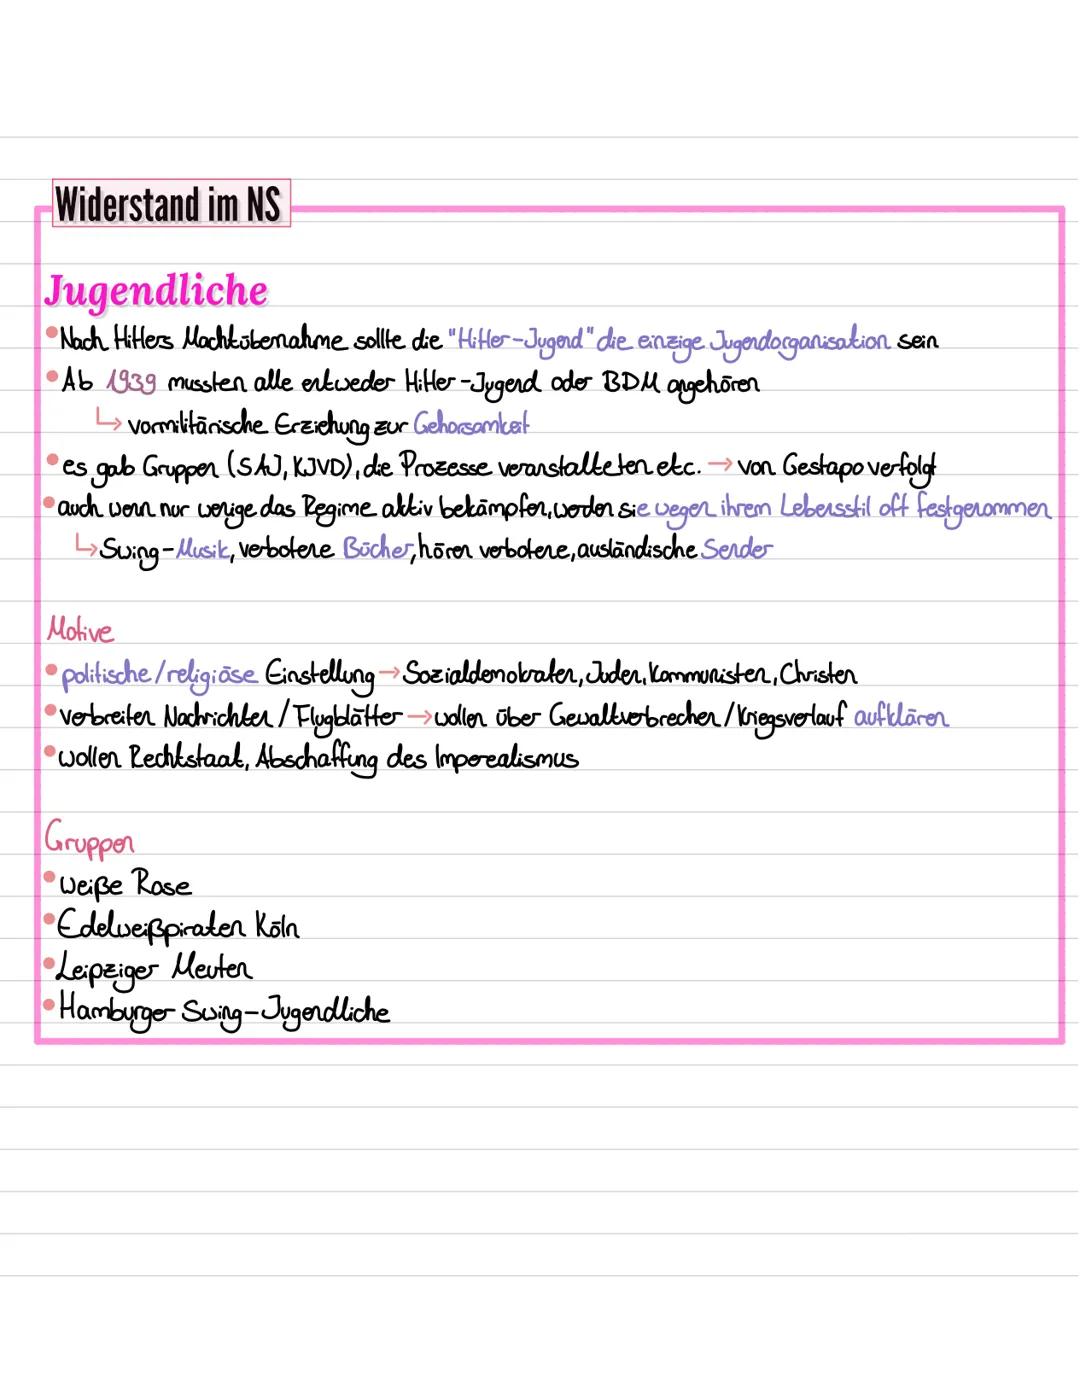 Widerstand im NS
Jugendliche
•Nach Hitlers Machtübernahme sollte die "Hitler-Jugend" die einzige Jugendorganisation sein
•Ab 1939 mussten alle entweder Hitler-Jugend oder BDM angehören
↳ vormilitärische Erziehung zur Gehorsamkeit
•es gab Gruppen (SAJ, KJVD), die Prozesse veranstalteten etc. → von Gestapo verfolgt
•auch wenn nur wenige das Regime aktiv bekämpfen, werden sie wegen ihrem Lebensstil oft festgenommen
↳ Swing-Musik, verbotene Bücher, hören verbotene, ausländische Sender
Motive
•politische/religiöse Einstellung → Sozialdemokraten, Juden, Kommunisten, Christen
•verbreiten Nachrichten / Flugblätter → wollen über Gewaltverbrechen / Kriegsverlauf aufklären
•wollen Rechtstaat, Abschaffung des Imperealismus
Gruppen
•weiße Rose
•Edelweißpiraten Köln
•Leipziger Meuten
•Hamburger Swing-Jugendliche